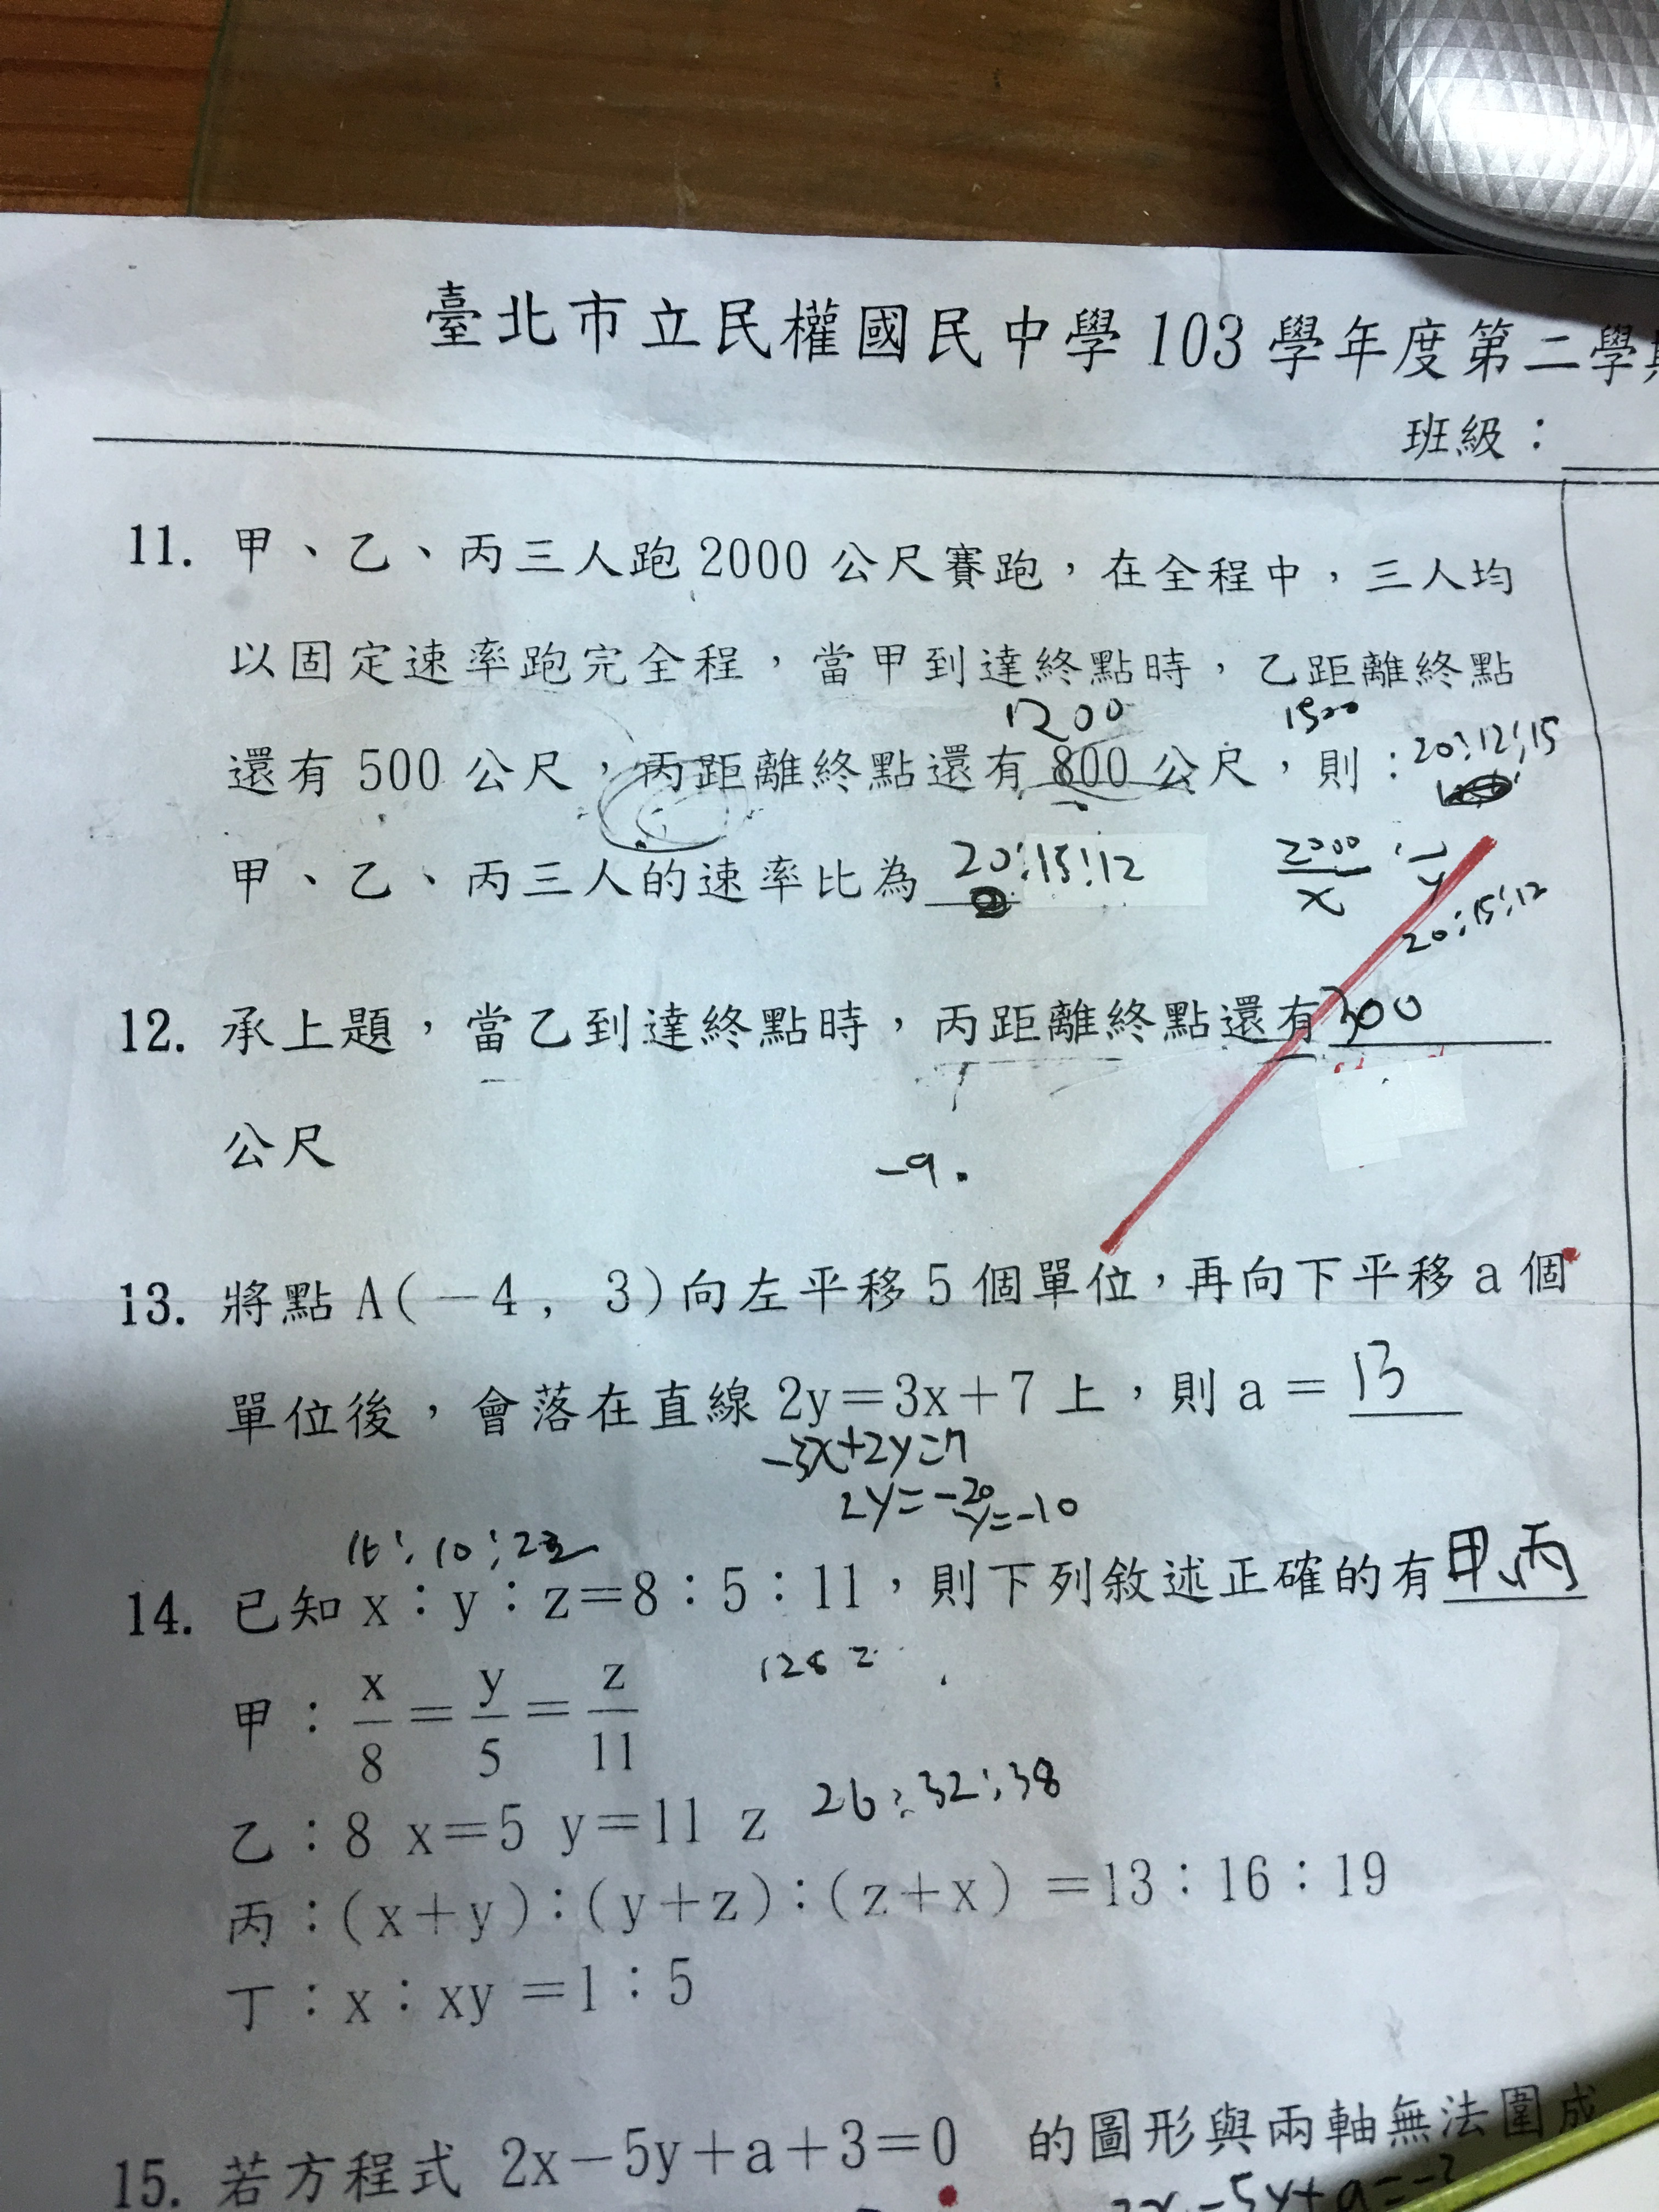 臺北市立民權國民中學 103 學年度第二學期
班級：
11. 甲、乙、丙三人跑 2000 公尺賽跑，在全程中，三人均
以固定速率跑完全程，當甲到達終點時，乙距離終點
1200 1500
還有 500 公尺，丙距離終點還有 800 公尺，則：20:12:15
甲、乙、丙三人的速率比為 20:15:12 2000/x
20:15:12
12. 承上題，當乙到達終點時，丙距離終點還有 300
公尺
-9
13. 將點 A(－4，3)向左平移 5 個單位，再向下平移 a 個
單位後，會落在直線 2y＝3x＋7 上，則 a＝ 13
-3x+2y=7
2y=-20
y=-10
16:10:22
14. 已知 x：y：z＝8：5：11，則下列敘述正確的有 甲、丙
128
甲：x/8＝y/5＝z/11
乙：8 x＝5 y＝11 z 26:32:38
丙：(x＋y)：(y＋z)：(z＋x) ＝13：16：19
丁：x：xy ＝1：5
15. 若方程式 2x－5y＋a＋3＝0 的圖形與兩軸無法圍成
2x-5y+a=-3